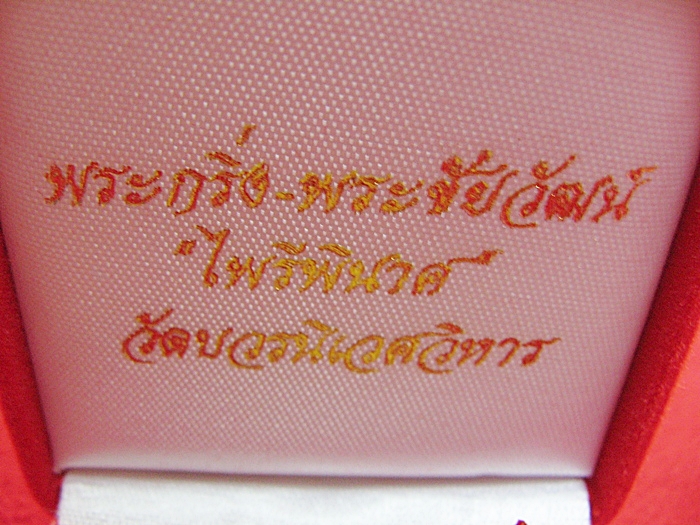 พระกริ่ง-พระชัยวัฒน์
"ไพรีพินาศ"
วัดบวรนิเวศวิหาร